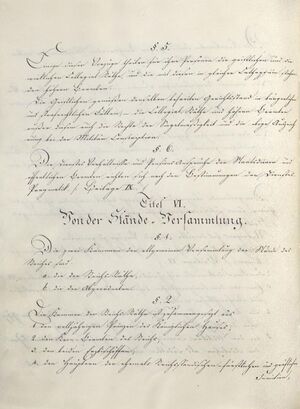 § 5.
Einige dieser Vorzüge theilen für ihre Personen die geistlichen und die
weltlichen Collegial-Räthe, und die mit diesen in gleicher Cathegorie stehen-
den höhern Beamten.
Die Geistlichen genießen denselben befreiten Gerichtsstand in bürgerlichen
und strafrechtlichen Fällen,
die Collegial-Räthe und höheren Beamten
der Siegelmäßigkeit und die obige Auszeich-
nung bei der Militär-Conscription.
§ 6.
Die Dienstes-Verhältnisse und Pensions-Ansprüche der Staatsdiener und
öffentlichen Beamten richten sich nach den Bestimmungen der Dienstes-
Pragmatik (Beilage IX.
Titel VI.
Von der Stände-Versammlung.
§ 1.
Die zwei Kammern der allgemeinen Versammlung der Stände des
Reichs sind
a. die der Reichs-Räthe,
b. die der Abgeordneten.
§ 2.
Die Kammer der Reichs-Räthe ist zusammengesetzt aus
1. den volljährigen Prinzen des Königlichen Hauses,
2. den Kron-Beamten des Reichs,
3. den beiden Erzbischöffen,
4. den Häuptern der ehemals Reichsständischen fürstlichen und gräflichen
Familien,